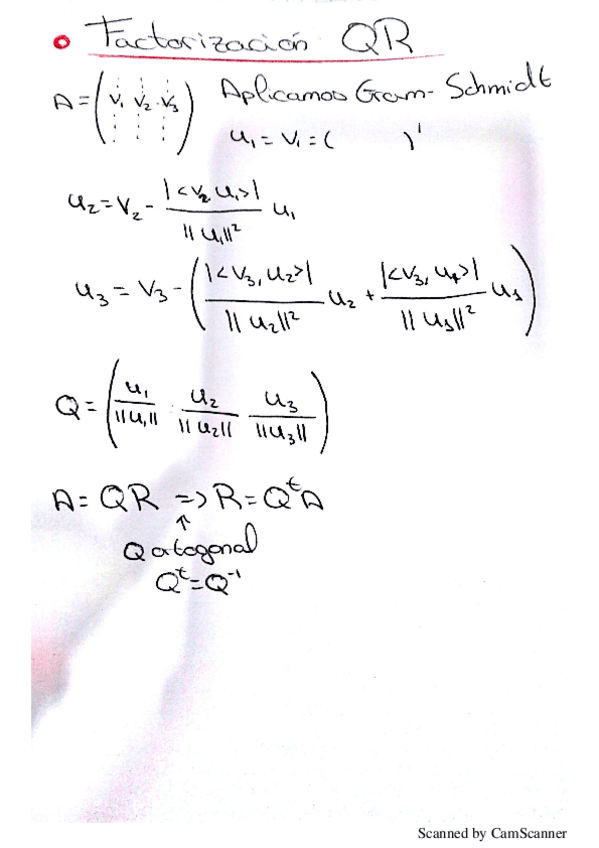 • Factorización QR
A = (v₁ v₂ v₃) Aplicamos Gram-Schmidt
u₁ = v₁ = ( )ᵗ
u₂ = v₂ - |<v₂, u₁>| / ||u₁||² u₁
u₃ = v₃ - ( |<v₃, u₂>| / ||u₂||² u₂ + |<v₃, u₁>| / ||u₁||² u₁ )
Q = ( u₁/||u₁|| u₂/||u₂|| u₃/||u₃|| )
A = QR => R = QᵗA
↑
Q otogonal
Qᵗ = Q⁻¹
Scanned by CamScanner